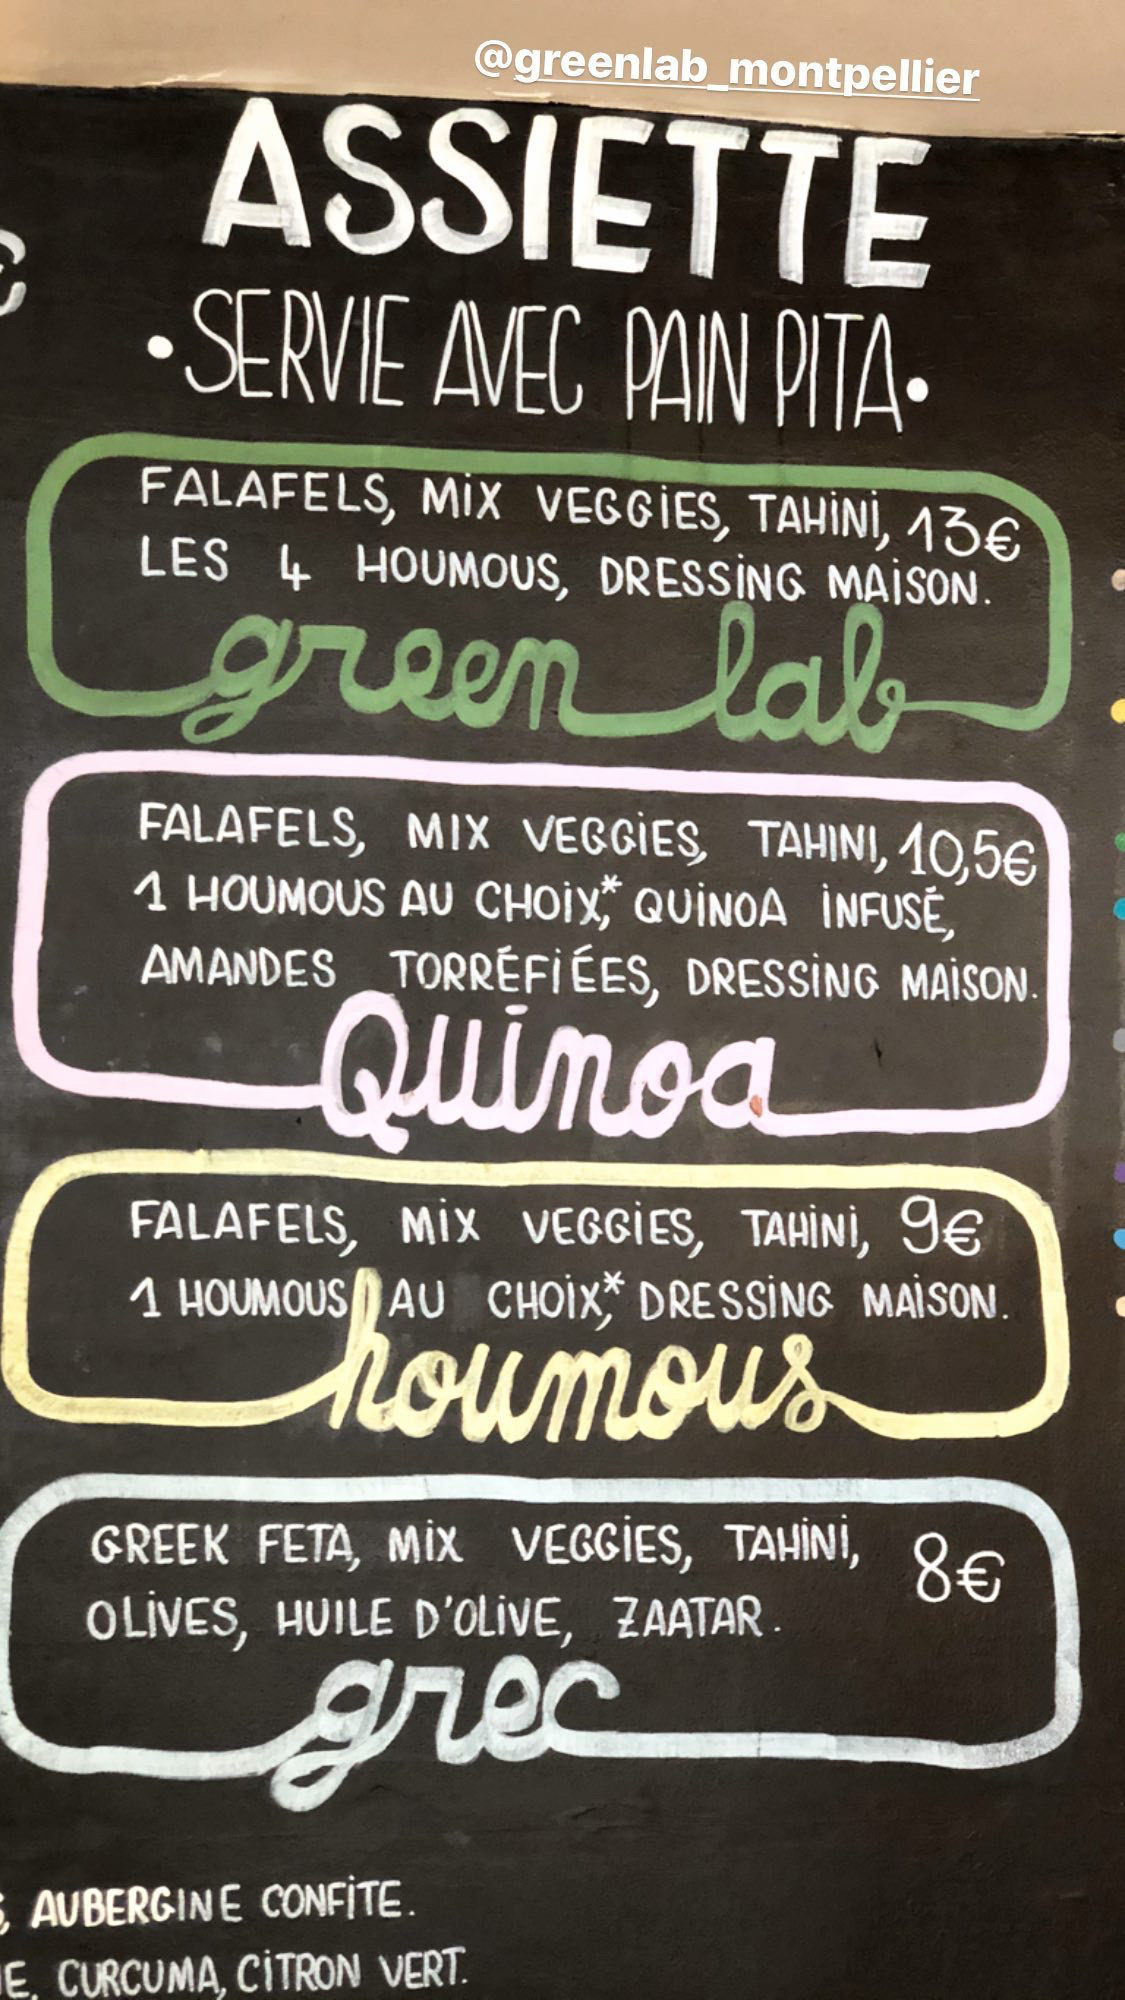 @greenlab_montpellier
€
ASSIETTE
•SERVIE AVEC PAIN PITA•
FALAFELS, MIX VEGGIES, TAHINI, 13€
LES 4 HOUMOUS, DRESSING MAISON.
green lab
FALAFELS, MIX VEGGIES, TAHINI, 10,5€
1 HOUMOUS AU CHOIX,* QUINOA INFUSÉ,
AMANDES TORRÉFIÉES, DRESSING MAISON.
Quinoa
FALAFELS, MIX VEGGIES, TAHINI, 9€
1 HOUMOUS AU CHOIX,* DRESSING MAISON.
houmous
GREEK FETA, MIX VEGGIES, TAHINI, 8€
OLIVES, HUILE D'OLIVE, ZAATAR.
grec
AUBERGINE CONFITE.
CURCUMA, CITRON VERT.